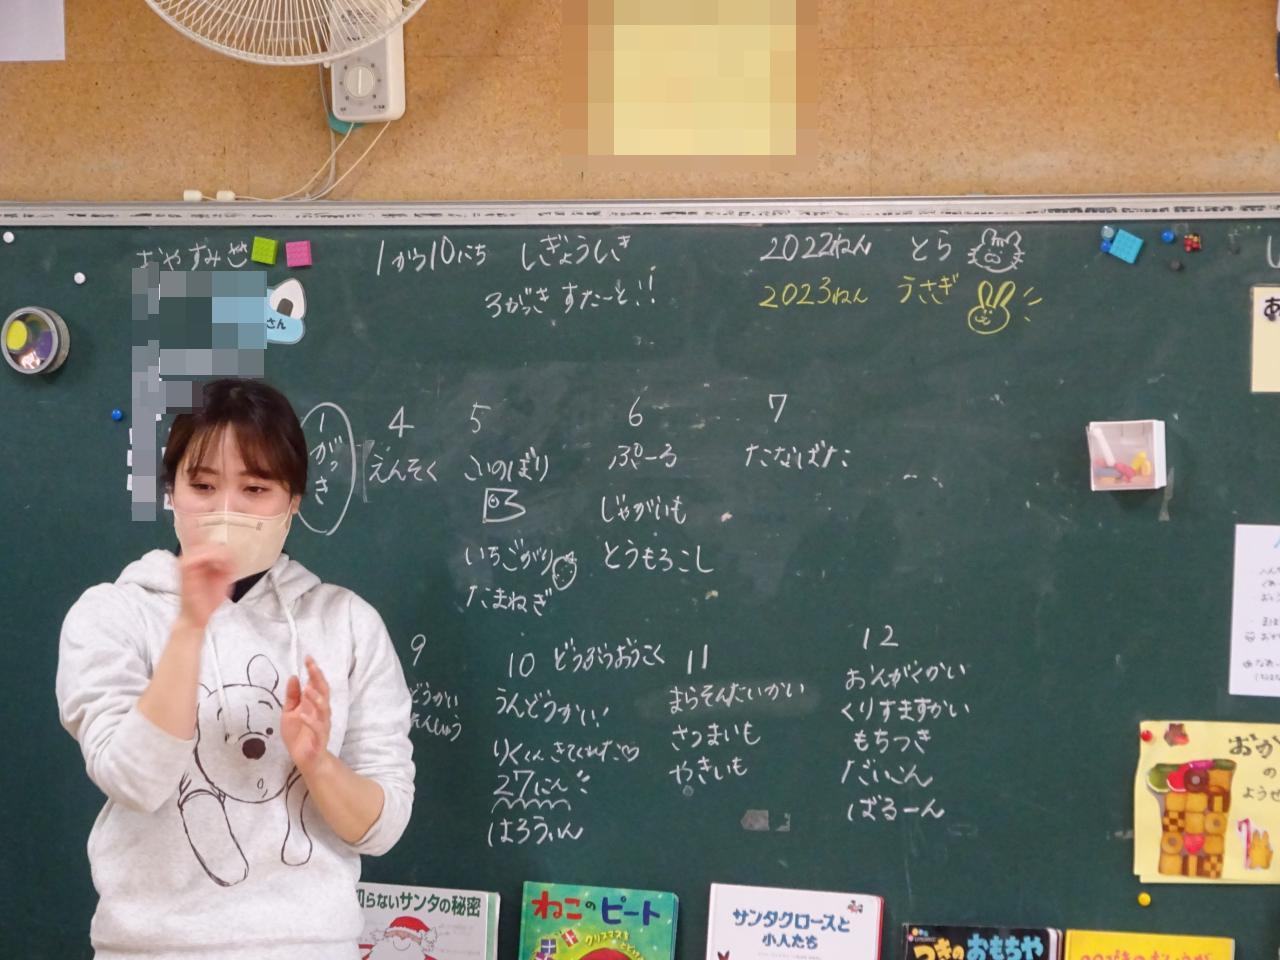 おやすみ
さん
1から10にち しぎょうしき
3がっき すたーと!!
2022ねん とら
2023ねん うさぎ
1がっき
4
えんそく
5
こいのぼり
いちごがり
たまねぎ
6
ぷーる
じゃがいも
とうもろこし
7
たなばた
9
どうかい
れんしゅう
10 どうぶつおうこく
うんどうかい!
りくくんきてくれた♡
27にん!!
はろうぃん
11
まらそんたいかい
さつまいも
やきいも
12
おんがくかい
くりすますかい
もちつき
だいこん
ばるーん
おか
の
ようせ
らないサンタの秘密
ねこのピート
クリスマスを
サンタクロースと
小人たち
つきのおもちゃ